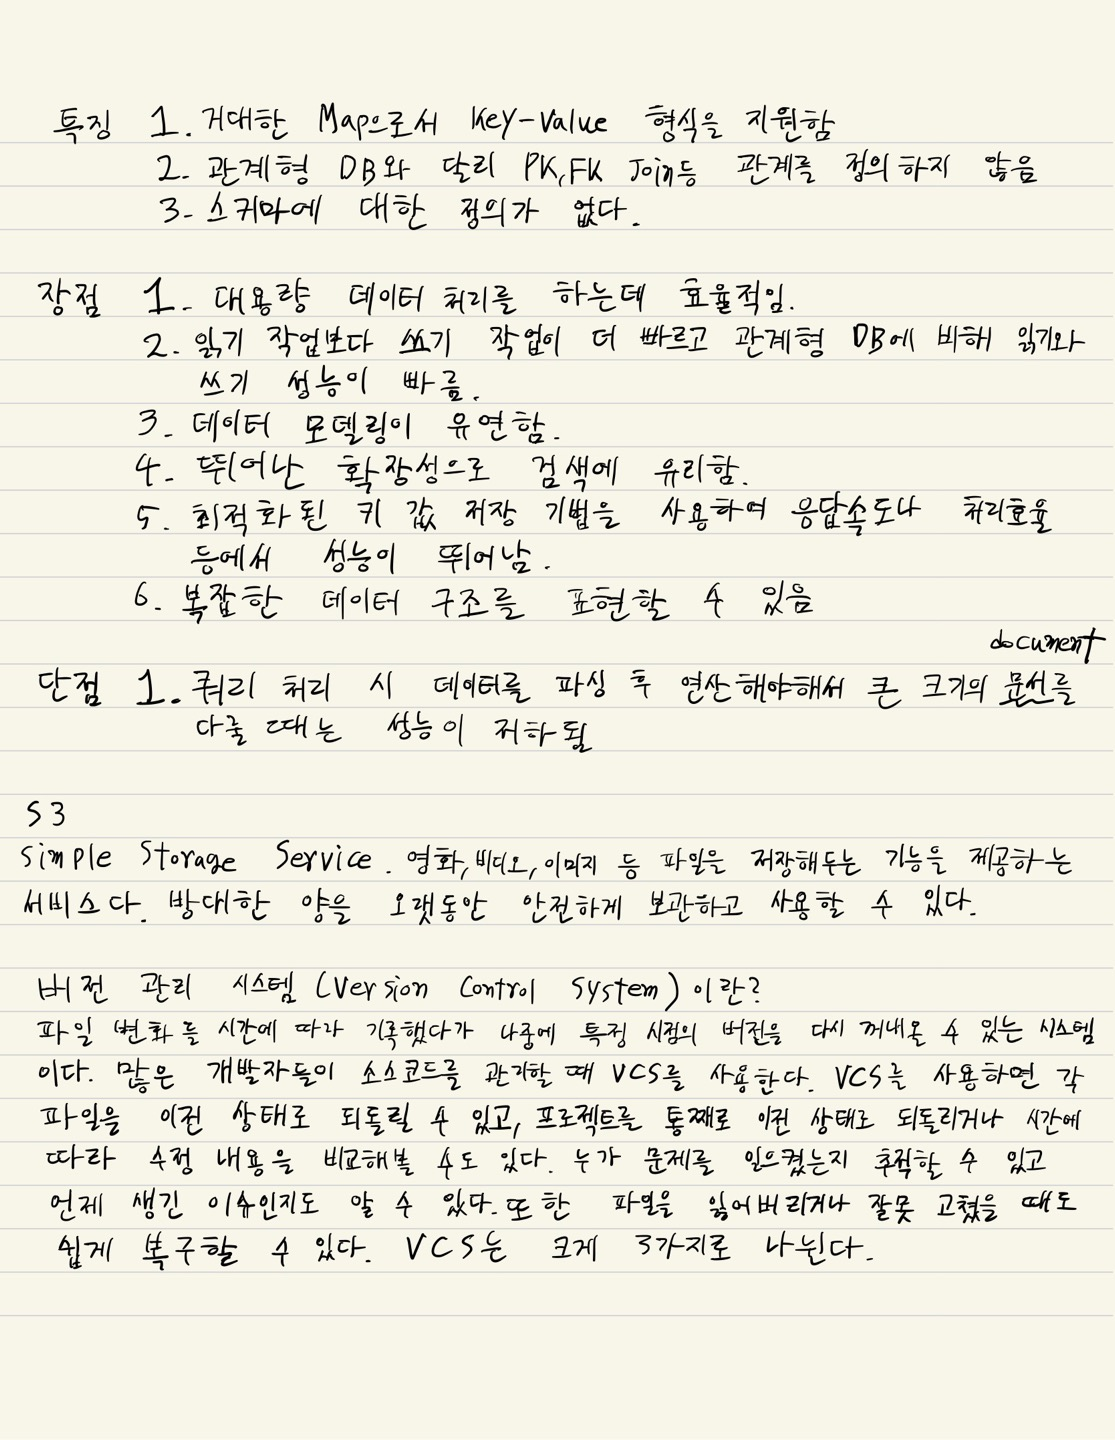 특징 1. 거대한 Map으로서 Key-Value 형식을 지원함
2. 관계형 DB와 달리 PK,FK Join등 관계를 정의하지 않음
3. 스키마에 대한 정의가 없다.
장점 1. 대용량 데이터 처리를 하는데 효율적임.
2. 읽기 작업보다 쓰기 작업이 더 빠르고 관계형 DB에 비해 읽기와
쓰기 성능이 빠름.
3. 데이터 모델링이 유연함.
4. 뛰어난 확장성으로 검색에 유리함.
5. 최적화된 키 값 저장 기법을 사용하여 응답속도나 처리효율
등에서 성능이 뛰어남.
6. 복잡한 데이터 구조를 표현할 수 있음
document
단점 1. 쿼리 처리 시 데이터를 파싱 후 연산해야해서 큰 크기의 문서를
다룰 때는 성능이 저하됨
S3
Simple Storage Service. 영화, 비디오, 이미지 등 파일을 저장해두는 기능을 제공하는
서비스다. 방대한 양을 오랫동안 안전하게 보관하고 사용할 수 있다.
버전 관리 시스템 (Version Control System) 이란?
파일 변화를 시간에 따라 기록했다가 나중에 특정 시점의 버전을 다시 꺼내올 수 있는 시스템
이다. 많은 개발자들이 소스코드를 관리할 때 VCS를 사용한다. VCS를 사용하면 각
파일을 이전 상태로 되돌릴 수 있고, 프로젝트를 통째로 이전 상태로 되돌리거나 시간에
따라 수정 내용을 비교해볼 수도 있다. 누가 문제를 일으켰는지 추적할 수 있고
언제 생긴 이슈인지도 알 수 있다. 또한 파일을 잃어버리거나 잘못 고쳤을 때도
쉽게 복구할 수 있다. VCS는 크게 3가지로 나뉜다.